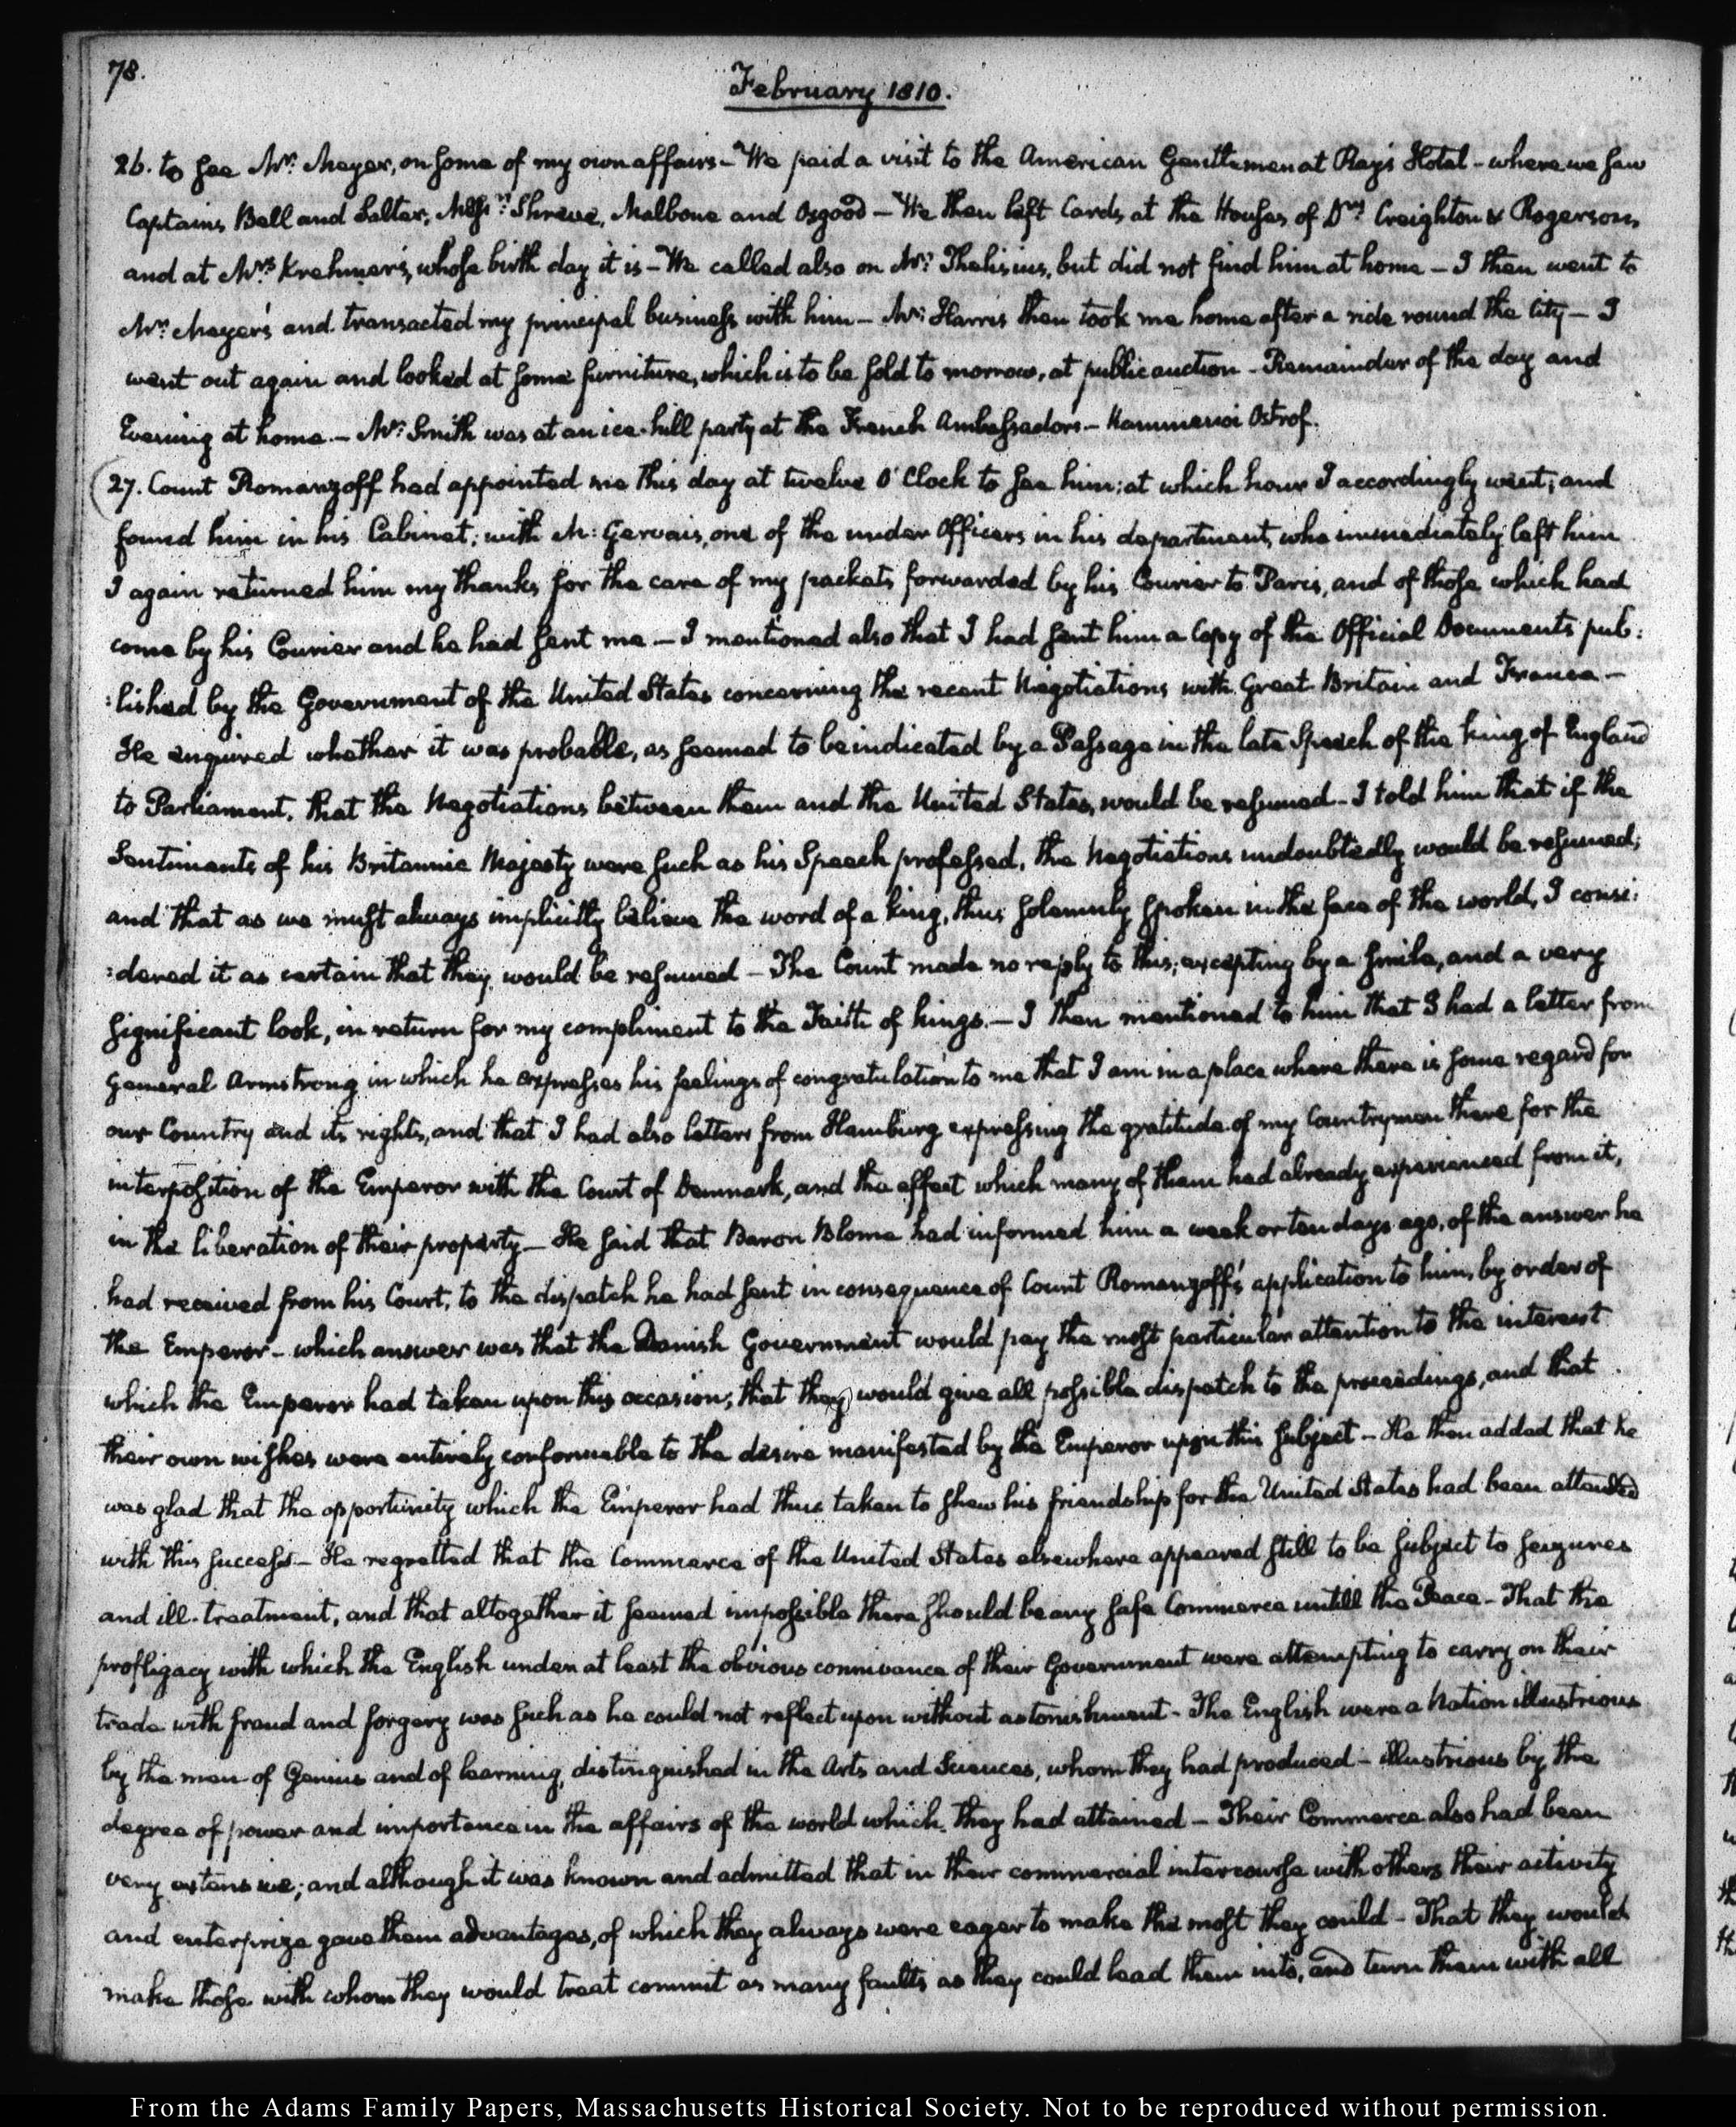 78.
February 1810.
26. to see Mr. Meyer, on some of my own affairs — We paid a visit to the American Gentlemen at Ray's Hotel — where we saw
Captains Bell and Salter, Messrs. Shreve, Malbone and Osgood — We then left Cards, at the Houses of Drs. Creighton & Rogerson,
and at Mrs. Krehmer's, whose birth day it is — We called also on Mr. Thelisius, but did not find him at home — I then went to
Mr. Meyer's and transacted my principal business with him — Mr. Harris then took me home after a ride round the City — I
went out again and looked at some furniture, which is to be sold to morrow, at public auction — Remainder of the day and
Evening at home. — Mr. Smith was at an ice-hill party at the French Ambassador's — Kammenoi Ostrof.
27. Count Romanzoff had appointed me this day at twelve O'Clock to see him; at which hour I accordingly went; and
found him in his Cabinet; with M: Gervais, one of the under Officers in his department, who immediately left him
I again returned him my thanks for the care of my packets forwarded by his Courier to Paris, and of those which had
come by his Courier and he had sent me — I mentioned also that I had sent him a Copy of the Official Documents pub:
:lished by the Government of the United States concerning the recent Negotiations with Great Britain and France —
He enquired whether it was probable, as seemed to be indicated by a Passage in the late Speech of the king of England
to Parliament, that the Negotiations between them and the United States, would be resumed — I told him that if the
Sentiments of his Britannic Majesty were such as his Speech professed, the Negotiations undoubtedly would be resumed;
and that as we must always implicitly believe the word of a king, thus solemnly spoken in the face of the world, I consi:
:dered it as certain that they would be resumed — The Count made no reply to this; excepting by a smile, and a very
significant look, in return for my compliment to the Faith of kings. — I then mentioned to him that I had a letter from
General Armstrong in which he expresses his feelings of congratulation to me that I am in a place where there is some regard for
our Country and its rights, and that I had also letters from Hamburg expressing the gratitude of my Countrymen there for the
interposition of the Emperor with the Court of Denmark, and the effect which many of them had already experienced from it,
in the liberation of their property — He said that Baron Blome had informed him a week or ten days ago, of the answer he
had received from his Court, to the dispatch he had sent in consequence of Count Romanzoff's application to him, by order of
the Emperor — which answer was that the Danish Government would pay the most particular attention to the interest
which the Emperor had taken upon this occasion; that they would give all possible dispatch to the proceedings, and that
their own wishes were entirely conformable to the desire manifested by the Emperor upon this subject — He then added that he
was glad that the opportunity which the Emperor had thus taken to shew his friendship for the United States had been attended
with this success — He regretted that the Commerce of the United States elsewhere appeared still to be subject to seizures
and ill-treatment, and that altogether it seemed impossible there should be any safe Commerce untill the Peace — That the
profligacy with which the English under at least the obvious connivance of their Government were attempting to carry on their
trade with fraud and forgery was such as he could not reflect upon without astonishment — The English were a Nation illustrious
by the men of Genius and of learning, distinguished in the Arts and Sciences, whom they had produced — illustrious by the
degree of power and importance in the affairs of the world which they had attained — Their Commerce also had been
very extensive; and although it was known and admitted that in their commercial intercourse with others their activity
and enterprize gave them advantages, of which they always were eager to make the most they could — That they would
make those with whom they would treat commit as many faults as they could lead them into, and turn them with all
From the Adams Family Papers, Massachusetts Historical Society. Not to be reproduced without permission.